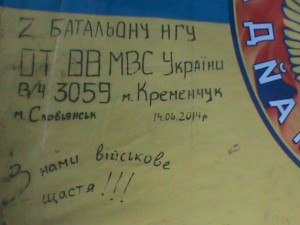 2 БАТАЛЬОНУ НГУ
ОТ ВВ МВС України
В/Ч 3059 м. Кременчук
м. Словьянськ 14.06.2014р
З нами військове
щастя!!!